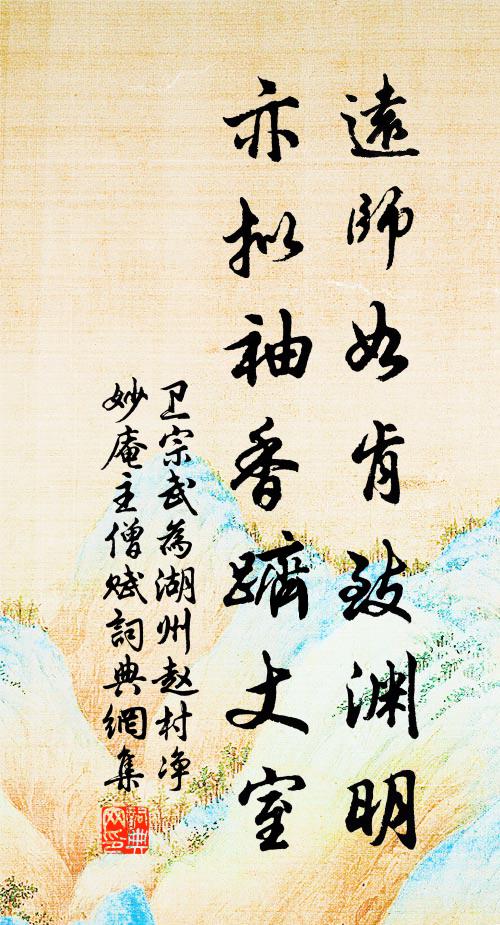 遠師如肯致渊明
亦拟袖香躋丈室
卫宗武為湖州赵村净
妙庵主僧赋詞典網集
詞典
网印